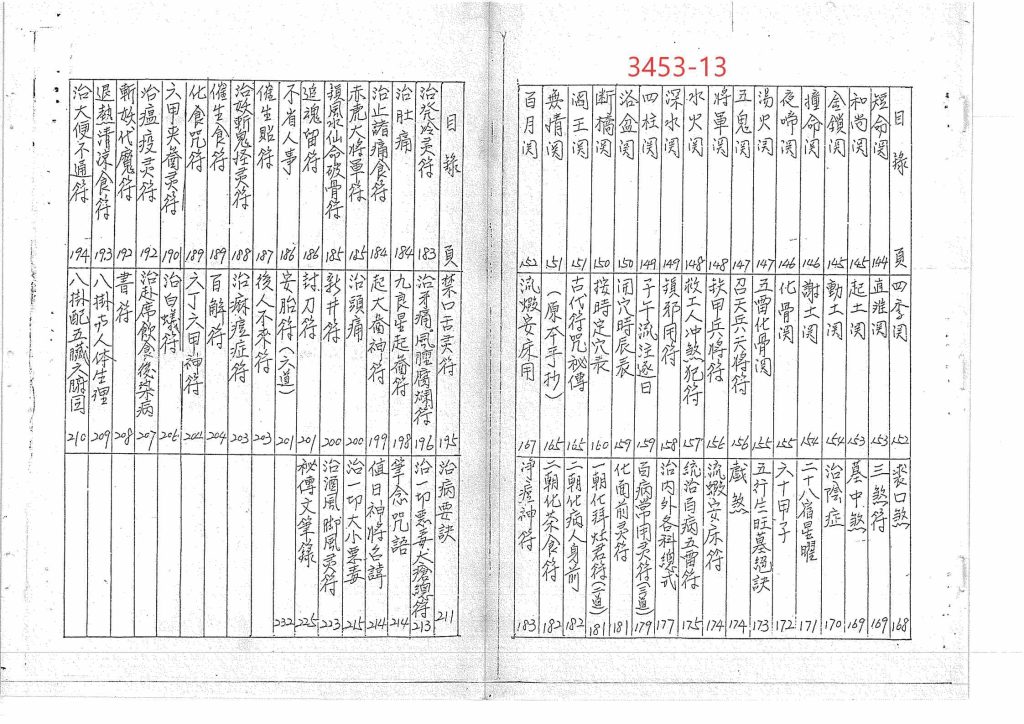 3453-13
目錄 頁
短命関 144
和尚関 145
金鎖関 145
撞命関 146
夜啼関 146
湯火関 147
五鬼関 147
將軍関 148
水火関 148
深水関 149
四柱関 149
浴盆関 150
断橋関 150
閻王関 151
無情関 151
百日関 152
四季関 152
直难関 153
起土関 153
動土関 154
謝土関 154
化骨関 155
五雷化骨関 155
召天兵六天將符 156
鉄甲兵將符 156
救工人冲煞犯符 157
鎮邪用符 158
子午流注逐日 159
開穴時辰表 159
按時定穴表 160
古代符咒祕傳 165
(原本平抄) 165
流蝦安床用 167
裘口煞 168
三煞符 169
墓中煞 169
治陰症 170
二十八宿星曜 171
六十甲子 172
五行生旺墓絕訣 173
戲煞 174
流蝦安床符 174
統治百病五雷符 175
治內外各科總式 177
百病常用灵符(三道) 179
化面前灵符 181
一朝化拜灶君符(二道) 181
二朝化病人身前 182
三朝化茶食符 182
净痘神符 183
目錄 頁
治発冷灵符 183
治肚痛 184
治止諸痛食符 184
赤虎大將軍符 185
鎮風水仙命破骨符 185
追魂留符 186
不省人事 186
催生貼符 187
治政斬鬼怪灵符 188
催生食符 189
化食咒符 189
六甲夹番灵符 190
治瘟疫灵符 192
斬妖代魔符 192
退熱清涼食符 193
治大便不通符 194
禁口舌灵符 195
治牙痛風膣腐爛符 196
九良星起番符 198
起大番神符 199
治頭痛 200
新井符 200
封刀符 201
安胎符(六道) 201
後人不來符 203
治麻痘症符 203
百解符 204
六丁六甲神符 204
治白蟻符 206
治赴席飲食後染病 207
書符 208
八掛与人体生理 209
八掛配五臟六腑図 210
治病要訣 211
治一切悪毒大瘡總符 213
筆念咒語 214
值日神將名諱 214
治一切大小悪毒 215
治酒風脚風灵符 223
祕傳文筆錄 225
232